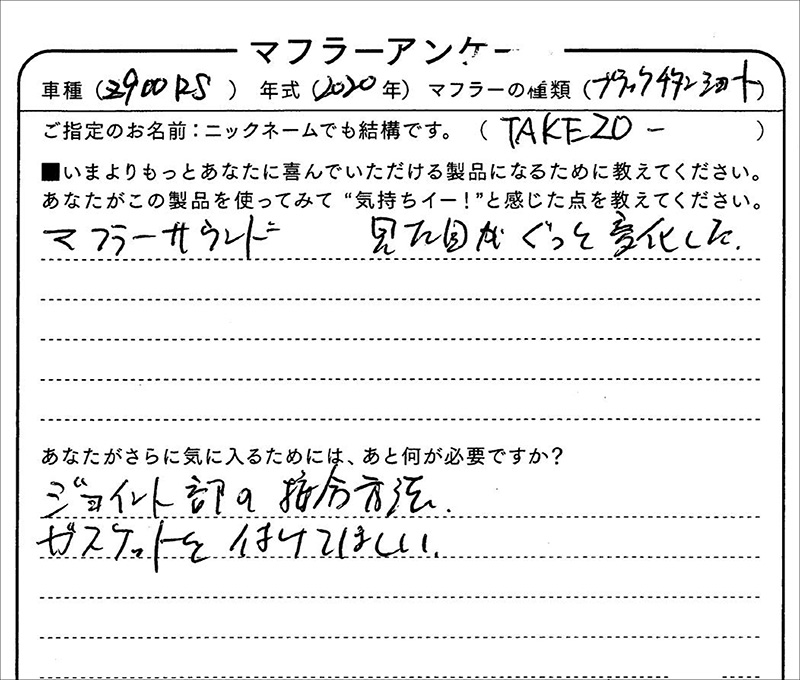 マフラーアンケー
車種(Z900RS) 年式(2020年) マフラーの種類(ブラックチタンショート)
ご指定のお名前:ニックネームでも結構です。(TAKEZO-)
■いまよりもっとあなたに喜んでいただける製品になるために教えてください。
あなたがこの製品を使ってみて“気持ちイー!”と感じた点を教えてください。
マフラーサウンド 見た目がぐっと変化した.
あなたがさらに気に入るためには、あと何が必要ですか?
ジョイント部の接合方法.
ガスケットを付けてほしい.